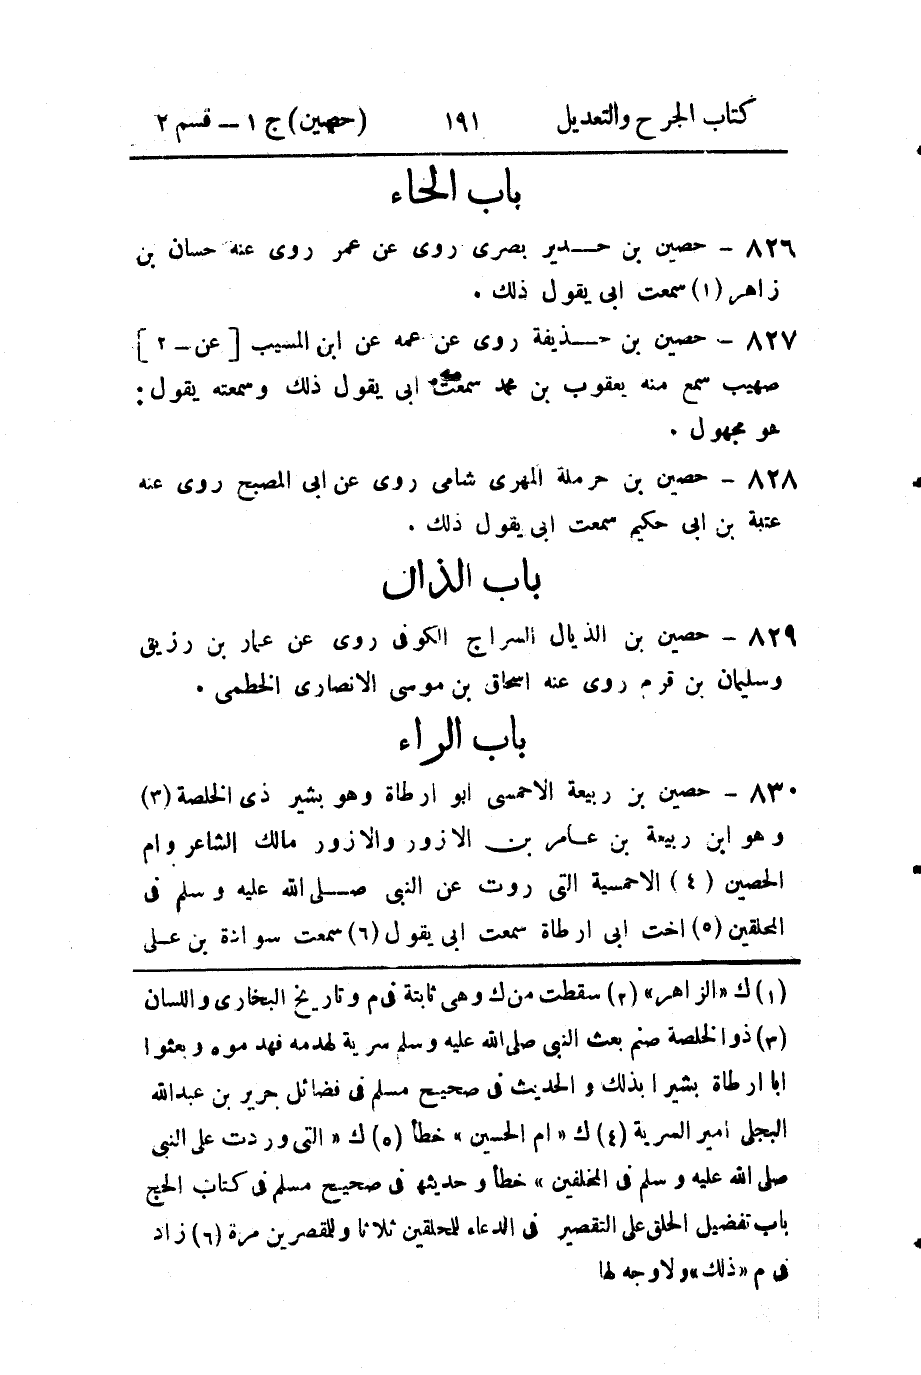 كتاب الجرح والتعديل ١٩١ (حصين) ج ١ – قسم ٢
باب الحاء
٨٢٦ – حصين بن حدير بصرى روى عن عمر روى عنه حسان بن
زاهر (١) سمعت ابى يقول ذلك .
٨٢٧ – حصين بن حذيفة روى عن عمه عن ابن المسيب [عن – ٢]
صهيب سمع منه يعقوب بن محمد سمعت ابى يقول ذلك وسمعته يقول :
هو مجهول .
٨٢٨ – حصين بن حرملة المهرى شامى روى عن ابى المصبح روى عنه
عتبة بن ابى حكيم سمعت ابى يقول ذلك .
باب الذال
٨٢٩ – حصين بن الذيال السراج الكوفى روى عن عمار بن رزيق
وسليمان بن قرم روى عنه اسحاق بن موسى الانصارى الخطمى .
باب الراء
٨٣٠ – حصين بن ربيعة الاحمسى ابو ارطاة وهو بشير ذى الخلصة (٣)
وهو ابن ربيعة بن عامر بن الازور والازور مالك الشاعر وام
الحصين (٤) الاحمسية التى روت عن النبى صلى الله عليه وسلم فى
المحلقين (٥) اخت ابى ارطاة سمعت ابى يقول (٦) سمعت سوادة بن على
(١) ك «الزاهر» (٢) سقطت من ك وهى ثابتة فى م وتاريخ البخارى واللسان
(٣) ذو الخلصة صنم بعث النبى صلى الله عليه وسلم سرية لهدمه فهدموه وبعثوا
ابا ارطاة بشيرا بذلك والحديث فى صحيح مسلم فى فضائل جرير بن عبدالله
البجلى امير السرية (٤) ك «ام الحسين» خطأ (٥) ك «التى وردت على النبى
صلى الله عليه وسلم فى المخلفين» خطأ وحديثها فى صحيح مسلم فى كتاب الحج
باب تفضيل الحلق على التقصير فى الدعاء للمحلقين ثلاثا وللمقصرين مرة (٦) زاد
فى م «ذلك» ولا وجه لها